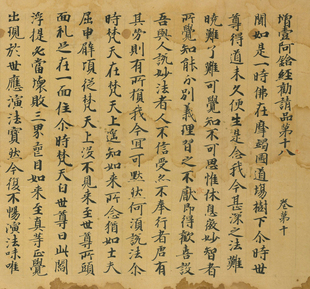 增壹阿鋡經勸請品第十八 卷第十
聞如是一時佛在摩竭國道場樹下尒時世
尊得道未久便生是念我今甚深之法難
曉難了難可覺知不可思惟休息微妙智者
所覺知能分別義理習之不猒即得歡喜設
吾與人說妙法者人不信受亦不奉行者唐有
其勞則有所損我今宜可默然何須說法尒
時梵天在梵天上遙知如來所念猶如士夫
屈申臂頃從梵天上沒不見來至世尊所頭
面礼足在一面住尒時梵天白世尊曰此閻
浮提必當壞敗三界喪目如來至真等正覺
出現於世應演法寶然今復不暢演法味唯